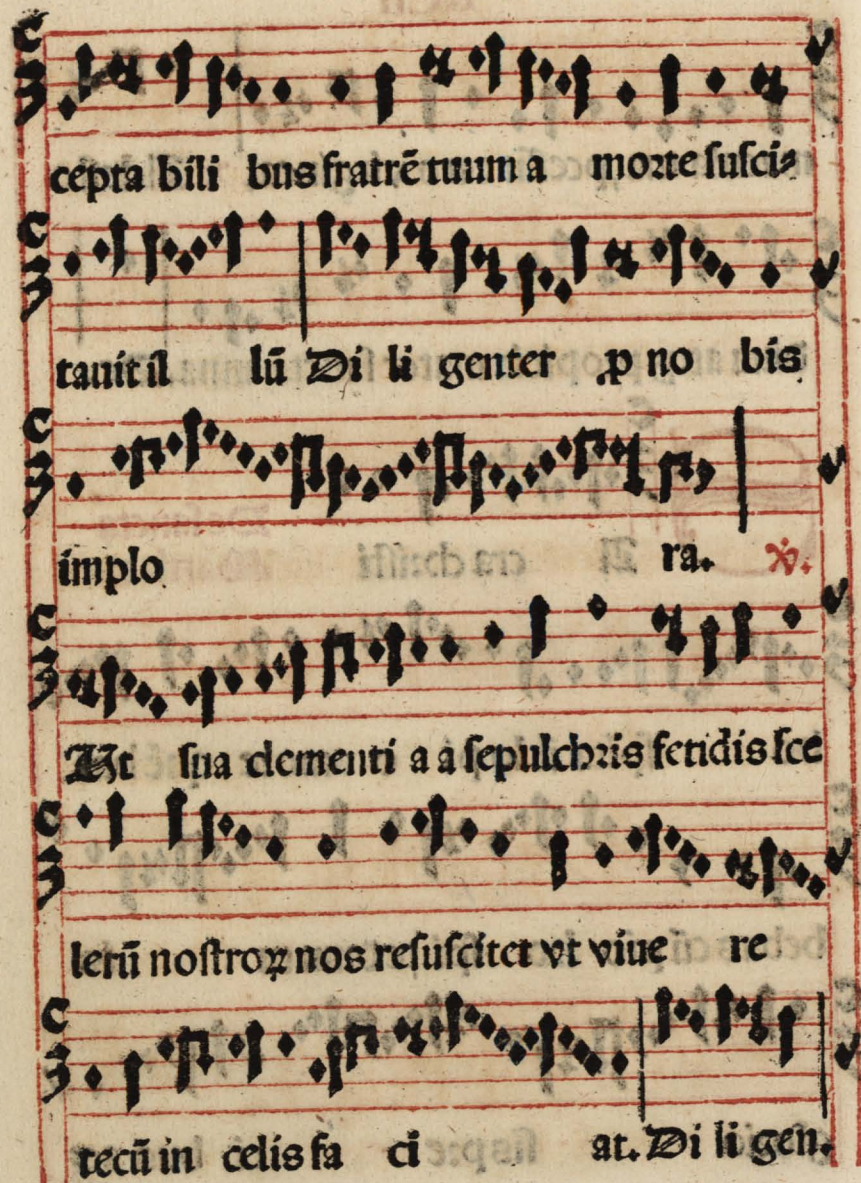 cepta bili bus fratrē tuum a moꝛte ſuſci⸗
tauit il lū Di li genter ꝓ no bis
implo ra. ℣.
Ut ſua clementi a a ſepulchꝛis fetidis ſce
lerū noſtroꝝ nos reſuſcitet vt viue re
tecū in celis fa ci at. Di li gen.